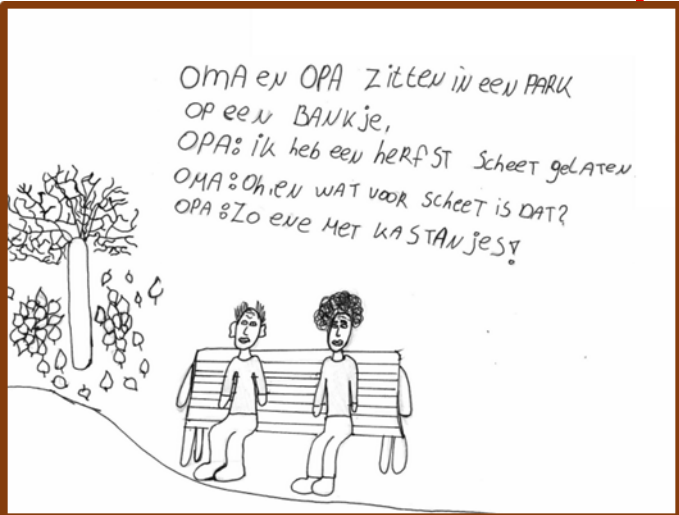 OMA EN OPA ZITTEN IN EEN PARK
OP EEN BANKje,
OPA: ik heb een heRfST scheeT geLATEN
OMA: Oh, en WAT VOOR scheeT is DAT?
OPA: ZO ENE MET KASTANjes!